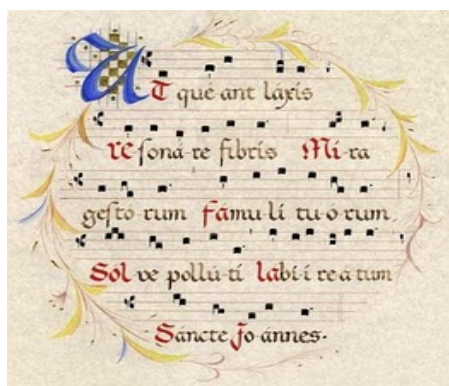 UT que ant láxis
re-soná-re fíbris Mi-ra
gestó-rum fámu-lí tu-o-rum,
Sol ve pollú-tí lábi-i re-á-tum
Sáncte Jo-ánnes.